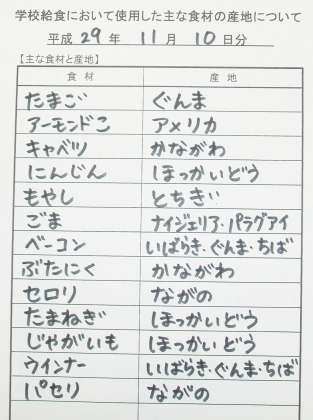 学校給食において使用した主な食材の産地について
平成 29 年 11 月 10 日分
【主な食材と産地】
食 材 産 地
たまご ぐんま
アーモンドこ アメリカ
キャベツ かながわ
にんじん ほっかいどう
もやし とちぎ
ごま ナイジェリア・パラグアイ
ベーコン いばらき・ぐんま・ちば
ぶたにく かながわ
セロリ ながの
たまねぎ ほっかいどう
じゃがいも ほっかいどう
ウインナー いばらき・ぐんま・ちば
パセリ ながの